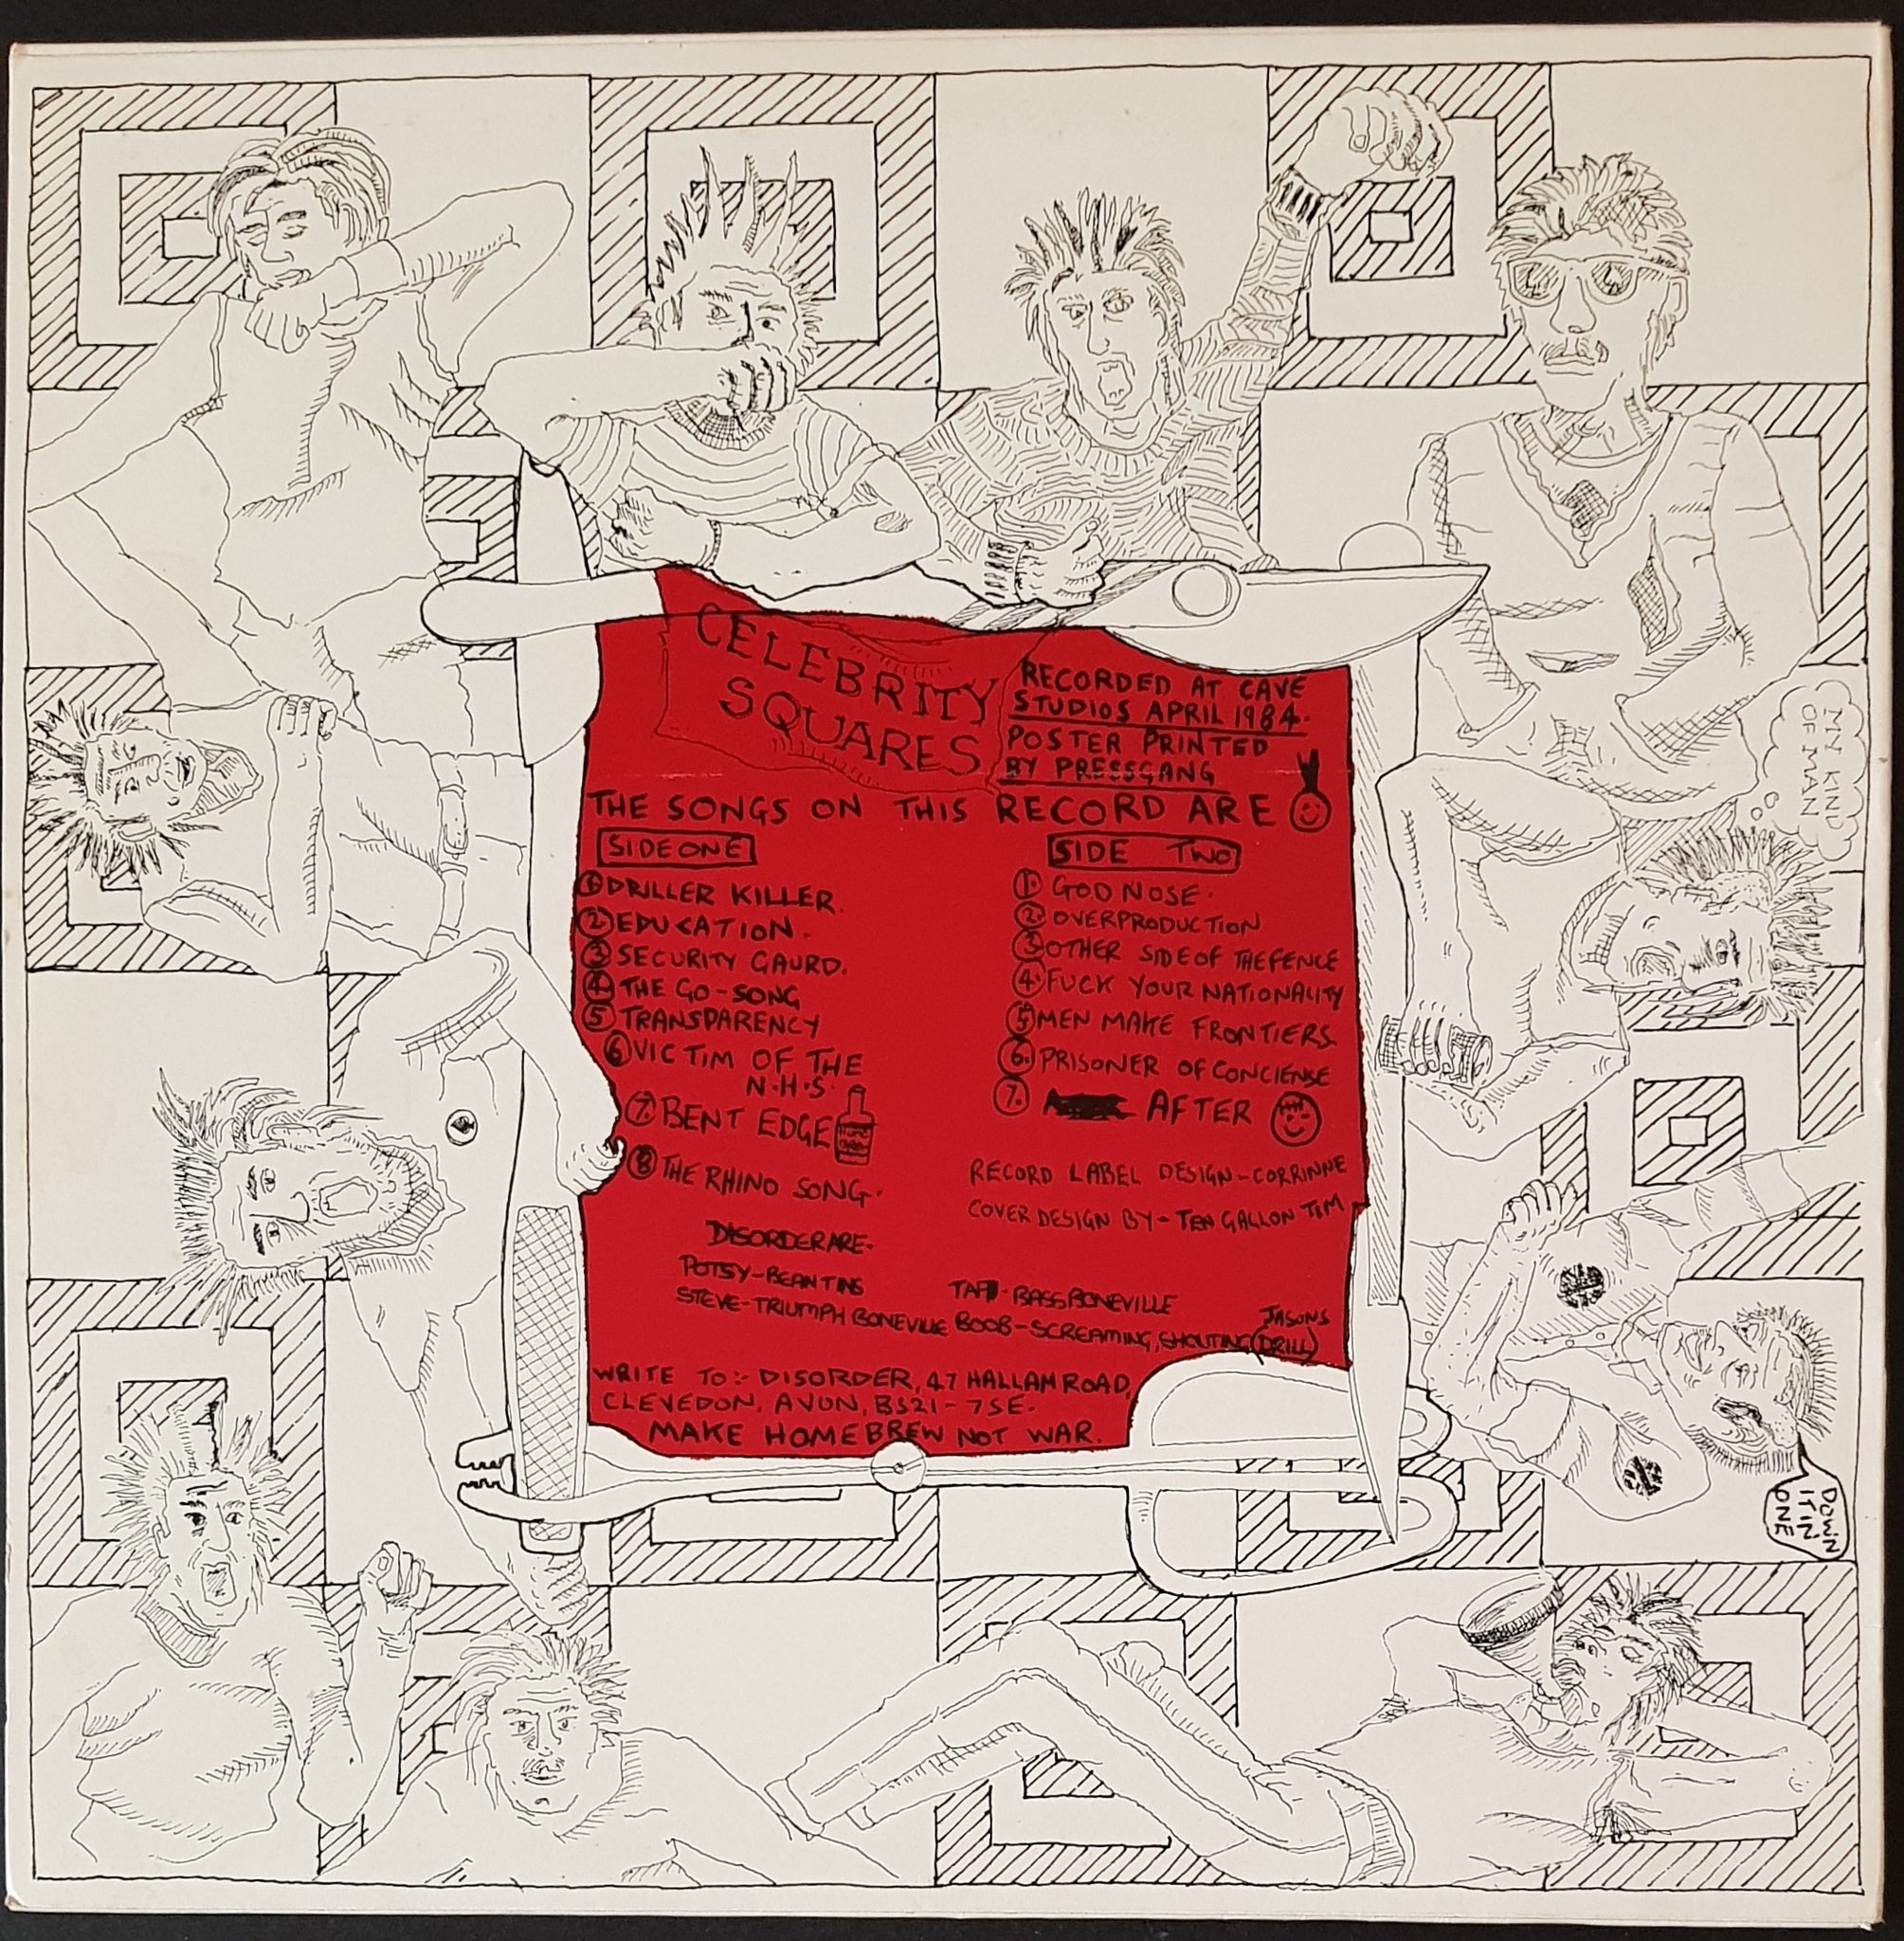 CELEBRITY
SQUARES
RECORDED AT CAVE
STUDIOS APRIL 1984.
POSTER PRINTED
BY PRESSGANG
THE SONGS ON THIS RECORD ARE
SIDE ONE
1 DRILLER KILLER.
2. EDUCATION.
3 SECURITY GAURD.
4. THE GO-SONG
5 TRANSPARENCY
6 VICTIM OF THE
N.H.S.
7. BENT EDGE
8 THE RHINO SONG.
SIDE TWO
1. GOD NOSE.
2. OVERPRODUCTION
3 OTHER SIDE OF THE FENCE
4. FUCK YOUR NATIONALITY
5 MEN MAKE FRONTIERS.
6. PRISONER OF CONCIENSE
7. AFTER
RECORD LABEL DESIGN-CORRINNE
COVER DESIGN BY-TEN GALLON TIM
DISORDER ARE-
POTSY-BEAN TINS
TAF-BASS BONEVILLE
STEVE-TRIUMPH BONEVILLE BOOB-SCREAMING, SHOUTING (JASONS DRILL)
WRITE TO:- DISORDER, 47 HALLAM ROAD,
CLEVEDON, AVON, BS21-7SE.
MAKE HOMEBREW NOT WAR.
MY KIND
OF MAN
DOWN
IT IN
ONE